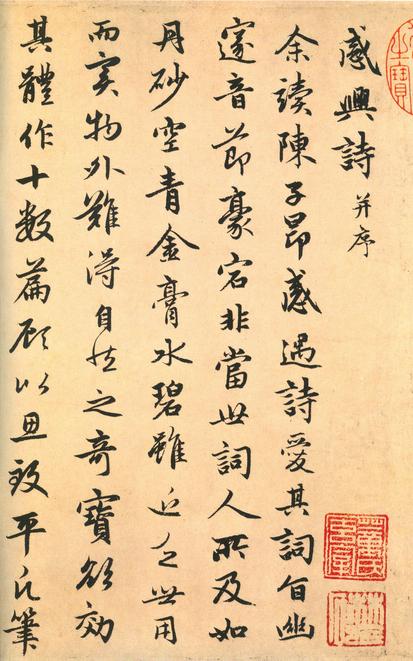 感興詩 并序
余讀陳子昂感遇詩愛其詞旨幽
邃音節豪宕非當世詞人所及如
丹砂空青金膏水碧雖近乏世用
而實物外難得自然之奇寶欲効
其體作十數篇顧以思致平凡筆